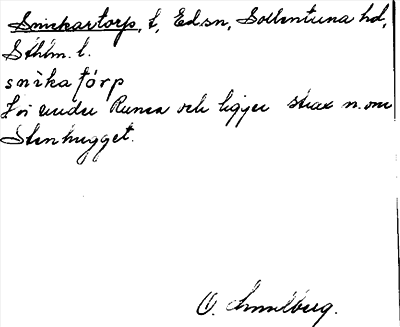 Snickartorp, t, Ed sn, Sollentuna hd,
Sthlm. l.
snìkatórp
T av under Runsa och ligger strax n. om
Stenhugget.